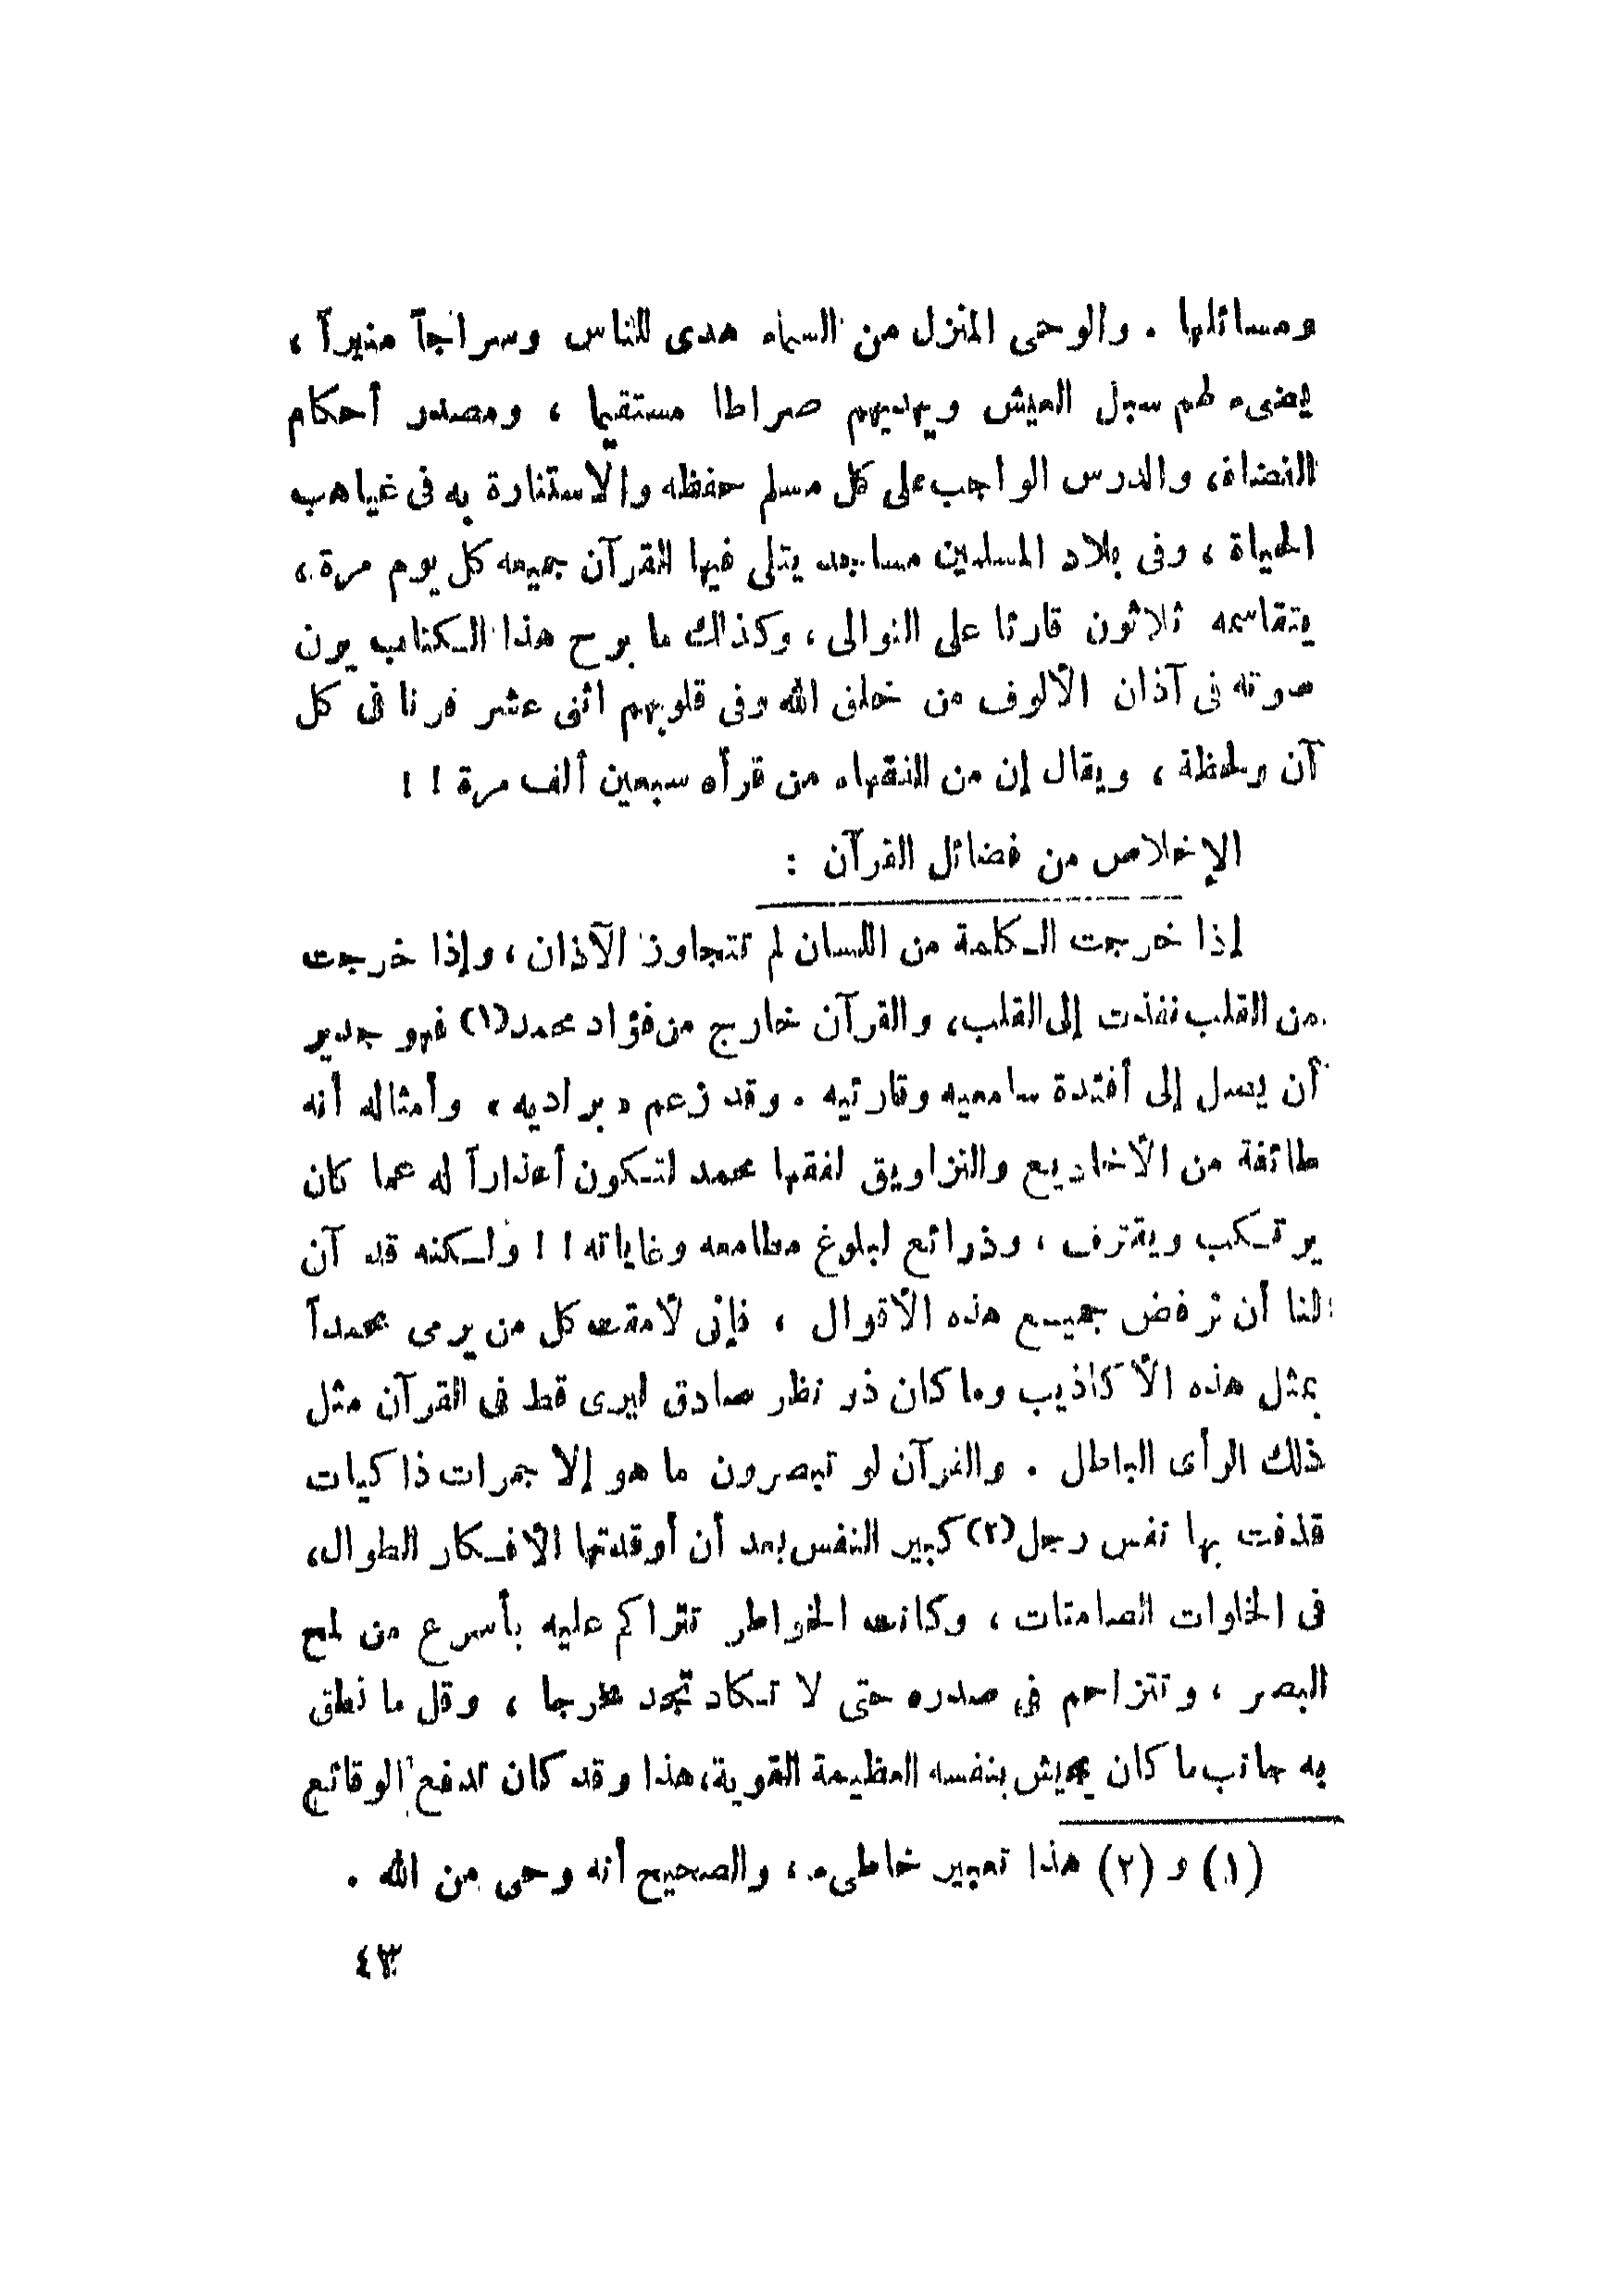 ومسائلها . والوحى المنزل من السماء هدى للناس وسراجاً منيراً ،
يضىء لهم سبل العيش ويهديهم صراطا مستقيما ، ومصدر أحكام
القضاة، والدرس الواجب على كل مسلم حفظه والاستنارة به فى غياهب
الحياة ، وفى بلاد المسلمين مساجد يتلى فيها القرآن جميعه كل يوم مرة ،
يتقاسمه ثلاثون قارئا على التوالى ، وكذلك ما برح هذا الكتاب يرن
صوته فى آذان الألوف من خلق الله وفى قلوبهم اثنى عشر قرنا فى كل
آن ولحظة ، ويقال إن من الفقهاء من قرأه سبعين ألف مرة ! !
الإخلاص من فضائل القرآن :
إذا خرجت الكلمة من اللسان لم تتجاوز الآذان ، وإذا خرجت
من القلب نفذت إلى القلب، والقرآن خارج من فؤاد محمد(١) فهو جدير
أن يصل إلى أفئدة سامعيه وقارئيه . وقد زعم « براديه » وأمثاله أنه
طائفة من الأخاديع والتزاويق لفقها محمد لتكون أعذاراً له عما كان
يرتكب ويقترف ، وذرائع لبلوغ مطامعه وغاياته ! ! ولكنه قد آن
لنا أن نرفض جميع هذه الأقوال ، فإنى لأمقت كل من يرمى محمداً
بمثل هذه الأكاذيب وما كان ذو نظر صادق ليرى قط فى القرآن مثل
ذلك الرأى الباطل . والقرآن لو تبصرون ما هو إلا جمرات ذاكيات
قذفت بها نفس رجل(٢) كبير النفس بعد أن أوقدتها الأفكار الطوال،
فى الخلوات الصامتات ، وكانت الخواطر تتراكم عليه بأسرع من لمح
البصر ، وتتزاحم فى صدره حتى لا تكاد تجد مخرجا ، وقل ما نطق
به جانب ما كان يجيش بنفسه العظيمة القوية، هذا وقد كان تدفع الوقائع
(١) و (٢) هذا تعبير خاطىء ، والصحيح أنه وحى من الله .
٤٣